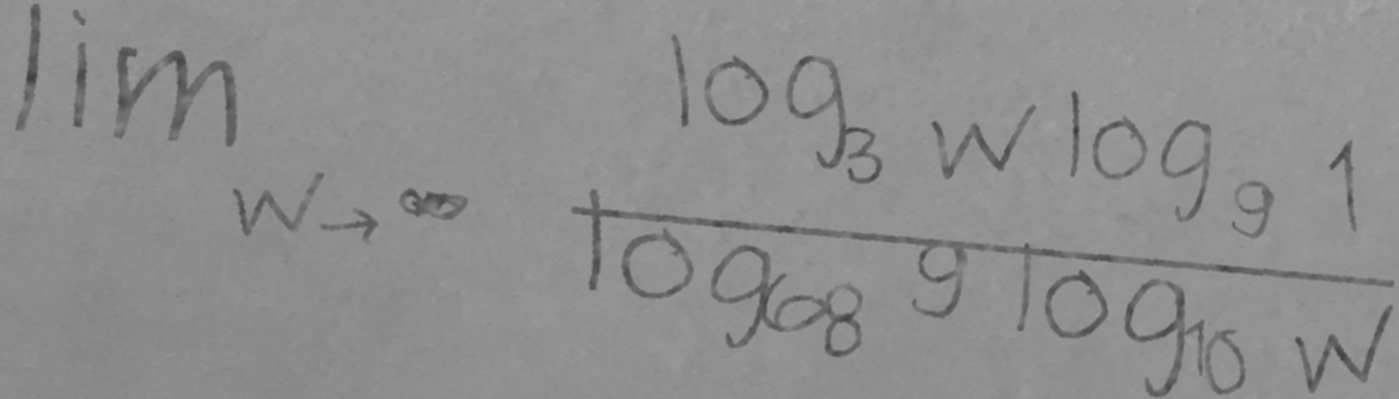 lim w→∞ log₃ w log₉ 1 / log₆₈ 9 log₁₀ w